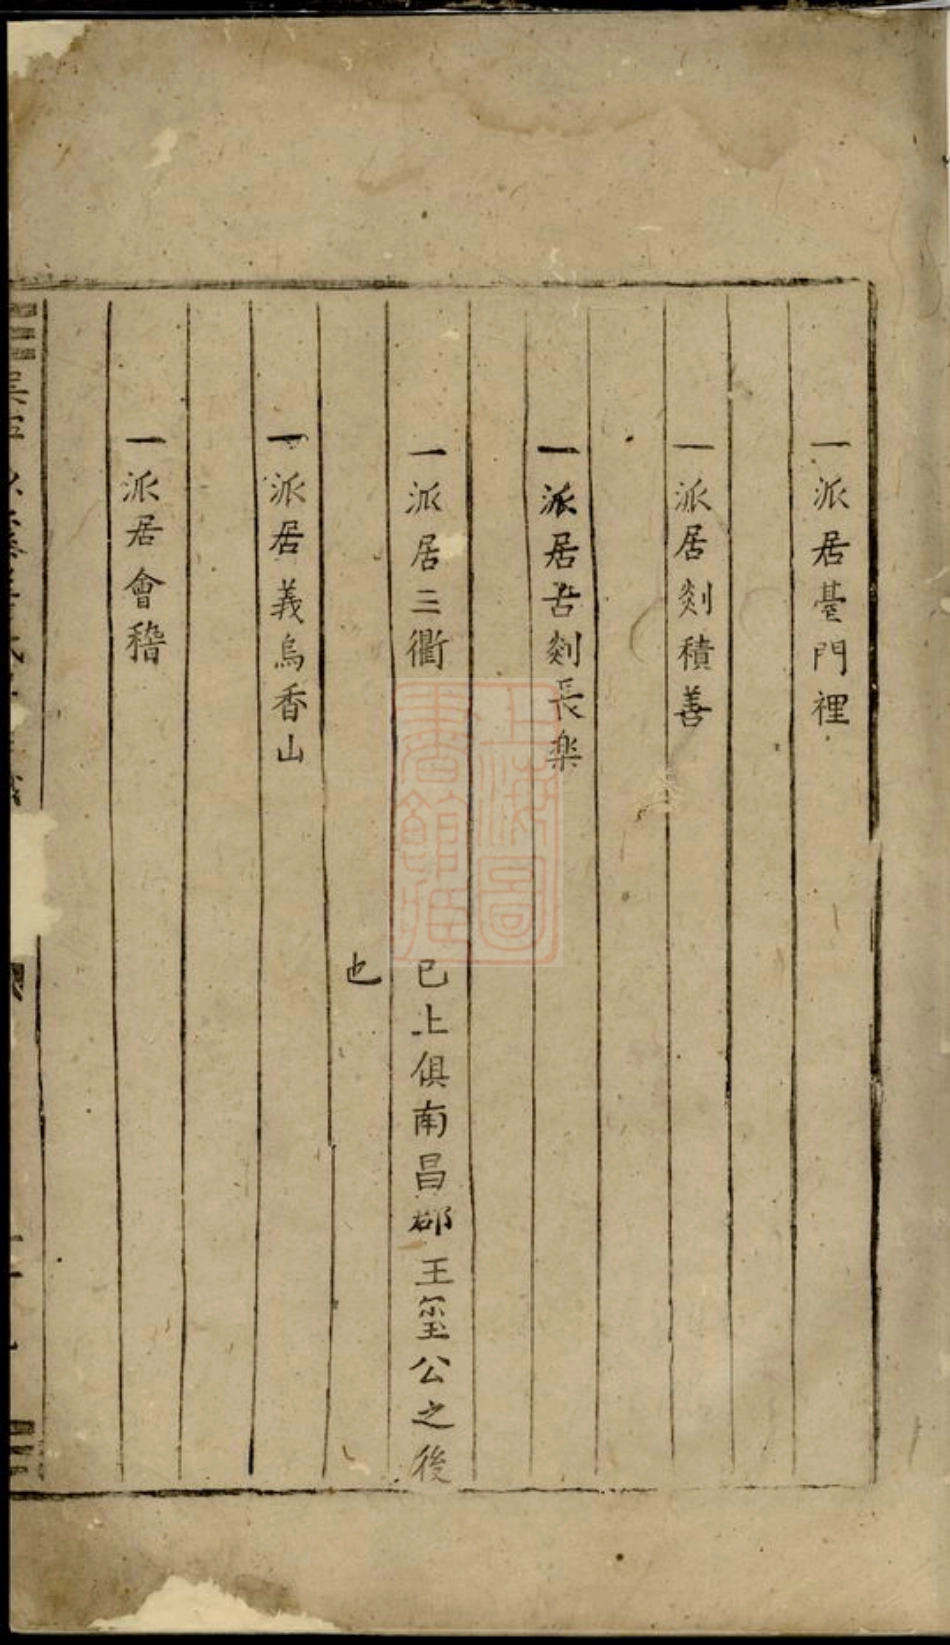 一派居臺門裡
一派居剡積善
一派居古剡長楽
一派居三衢
已上俱南昌郡王璽公之後
也
一派居義烏香山
一派居會稽
上海圖
書館藏